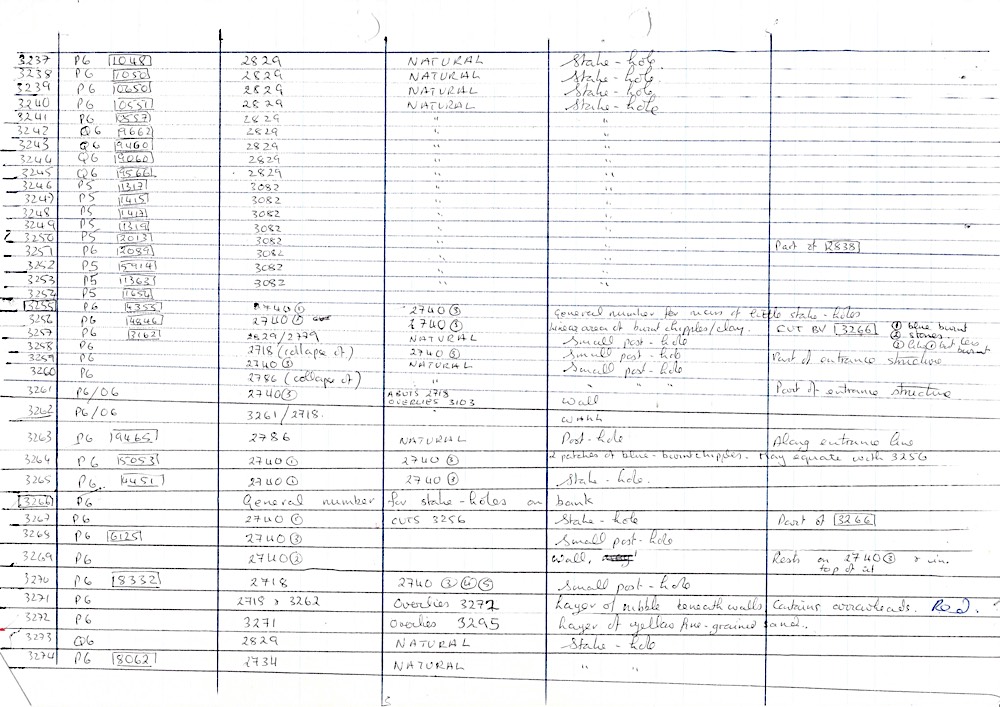 3237 P6 1048 2829 NATURAL Stake-hole
3238 P6 1050 2829 NATURAL Stake-hole
3239 P6 10650 2829 NATURAL Stake-hole
3240 P6 10551 2829 NATURAL Stake-hole
3241 P6 2829 " "
3242 Q6 9662 2829 " "
3243 Q6 9460 2829 " "
3244 Q6 9060 2829 " "
3245 Q6 9566 2829 " "
3246 P5 1317 3082 " "
3247 P5 1415 3082 " "
3248 P5 1417 3082 " "
3249 P5 1319 3082 " "
3250 P5 2013 3082 " "
3251 P6 2089 3082 " " Part of 2838
3252 P5 3082 " "
3253 P5 1363 3082 " "
P5
3255 P6 4355 2740 ① 2740 ③ General number for mass of little stake-holes
3256 P6 4846 2740 2740 ③ Linear area of burnt chipples/clay. CUT BY 3266 ① blue burnt
3257 P6 3162 2829/2779 NATURAL Small post-hole ② stones
3258 P6 2718 (collapse of) 2740 Small post-hole ③ like ① but less burnt
3259 P6 2740 NATURAL Small post-hole Part of entrance structure
3260 P6 2786 (collapse of) " " " "
3261 P6/O6 2740 ③ ABUTS 2718 Wall Part of entrance structure
OVERLIES 3103
3262 P6/O6 3261/2718. WALL
3263 P6 9465 2786 NATURAL Post-hole Along entrance line
3264 P6 5053 2740 ① 2740 ③ 2 patches of blue-burnt chipples. May equate with 3256
3265 P6 4451 2740 ① 2740 Stake-hole.
3266 P6 General number for stake-holes on bank
3267 P6 2740 ① CUTS 3256 Stake-hole Part of 3266
3268 P6 6125 2740 ③ Small post-hole
3269 P6 2740 ② Wall, Rests on 2740 ③ & in
top of it
3270 P6 8332 2718 2740 ③ ④ ⑤ Small post-hole
3271 P6 2718 & 3262 Overlies 3272 Layer of rubble beneath walls. Contains arrowheads. Ro 2. ?
3272 P6 3271 Overlies 3295 Layer of yellow fine-grained sand.
3273 Q6 2829 NATURAL Stake-hole
3274 P6 8062 2734 NATURAL " "